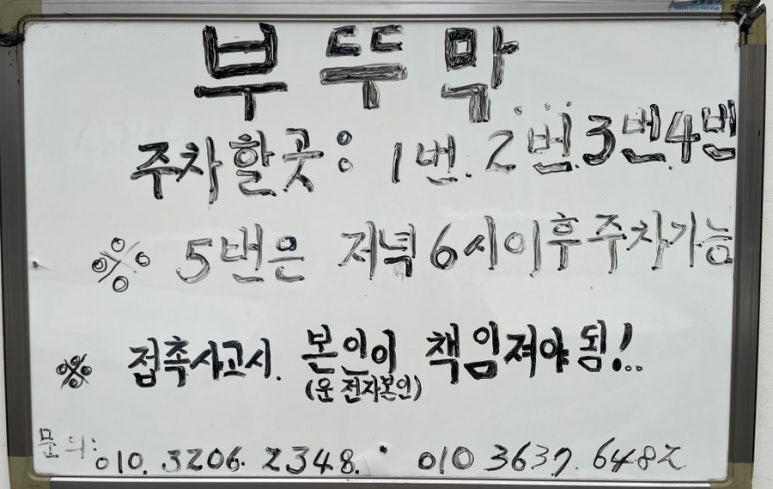 부뚜막
주차할곳: 1번. 2번. 3번. 4번
※ 5번은 저녁 6시이후 주차가능
※ 접촉사고시. 본인이 책임져야됨!..
(운전자본인)
문의: 010. 3206. 2348. · 010 3637. 6482